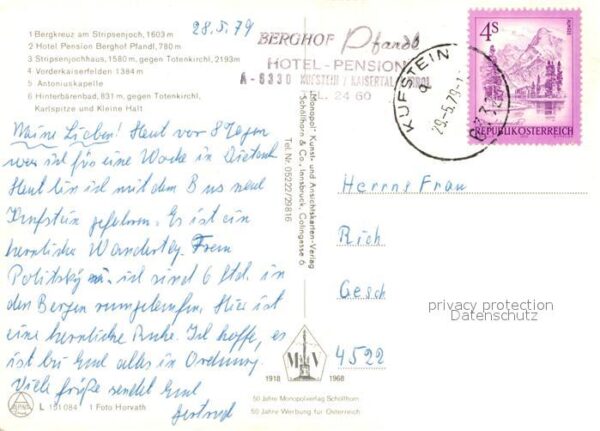 1 Bergkreuz am Stripsenjoch, 1603 m
2 Hotel Pension Berghof Pfandl, 780 m
3 Stripsenjochhaus, 1580 m, gegen Totenkirchl, 2193m
4 Vorderkaiserfelden 1384 m
5 Antoniuskapelle
6 Hinterbärenbad, 831 m, gegen Totenkirchl,
Karlspitze und Kleine Halt
28.5.79
BERGHOF Pfandl
HOTEL-PENSION
A-6330 KUFSTEIN / KAISERTAL
TEL. 24 60
KUFSTEIN
4S
REPUBLIK ÖSTERREICH
Meine Lieben! Heut vor 8 Tagen
war ich für eine Woche in
Heut bin ich mit dem Bus nach
Kufstein gefahren. Es ist ein
herrlicher Wandertag. Frau
u. ich sind 6 Std. in
den Bergen rumgelaufen. Hier ist
eine herrliche Ruhe. Ich hoffe, es
ist bei Euch alles in Ordnung.
Viele Grüße sendet Euch
Gertrud
"Monopol" Kunst- und Ansichtskarten-Verlag
Schöllhorn & Co., Innsbruck, Colingasse 6
Tel. Nr. 05222/29816
Herrn & Frau
Rich
Gesch
4522
privacy protection
Datenschutz
M V
1918 1968
50 Jahre Monopolverlag Schöllhorn
50 Jahre Werbung für Österreich
L 151084 1 Foto Horvath